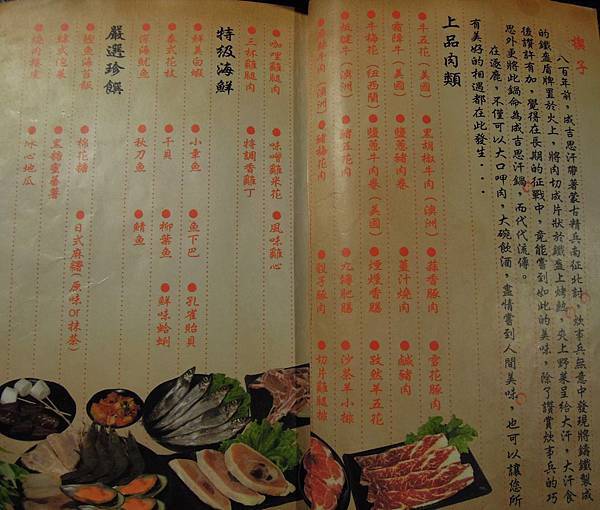 楔子
八百年前，成吉思汗帶著蒙古精兵南征北討，炊事兵無意中發現將鑄鐵製成
的鐵盔盾牌置於火上，將肉切成片狀於鐵盔上烤熟，夾上野菜呈給大汗，大汗食
後讚許有加，覺得在長期的征戰中，竟能嘗到如此的美味，除了讚賞炊事兵的巧
思外更將此鍋命為成吉思汗鍋，而代代流傳。
在逐鹿，不僅可以大口呷肉，大碗飲酒，盡情嘗到人間美味，也可以讓您所
有美好的相遇都在此發生...
上品肉類
牛五花（美國） 黑胡椒牛肉（澳洲） 蒜香豚肉 雪花豚肉
霜降牛（美國） 鹽蔥豬肉卷 薑汁燒肉 鹹豬肉
牛梅花（紐西蘭） 鹽蔥牛肉卷（美國） 煙燻香腸 孜然羊五花
板腱牛（澳洲） 豬五花肉 九轉肥腸 沙茶羊小排
牛肉（澳洲） 豬梅花肉 骰子豚肉 切片雞腿排
咖哩雞腿肉 味噌雞米花 風味雞心
三杯雞腿肉 特調香雞丁
特級海鮮
鮮美白蝦 小章魚 魚下巴 孔雀貽貝
泰式花枝 干貝 柳葉魚 鮮味蛤蜊
深海魷魚 秋刀魚 鯖魚
嚴選珍饌
鰹魚海苔飯 棉花糖 日式麻糬（原味or抹茶）
韓式泡菜 黑糖蜜番薯
燒肉粿皮 冰心地瓜